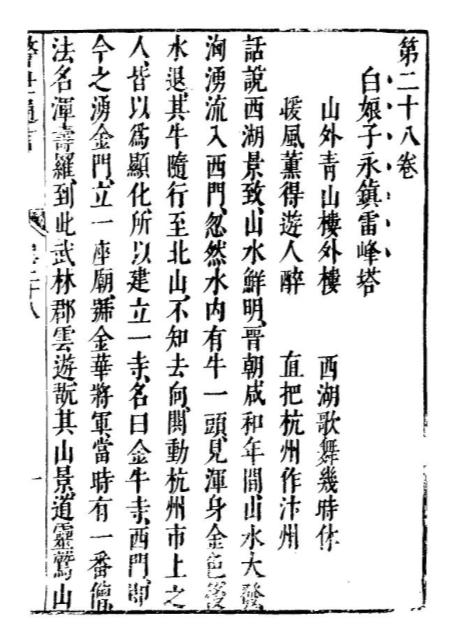 第二十八卷
白娘子永鎮雷峰塔
山外青山樓外樓　西湖歌舞幾時休
煖風薰得遊人醉　直把杭州作汴州
話說西湖景致、山水鮮明、晉朝咸和年間、山水大發
洶湧流入西門、忽然水內有牛一頭、見渾身金色、後
水退、其牛隨行至北山、不知去向、閧動杭州市上之
人、皆以爲顯化、所以建立一寺、名曰金牛寺、西門、即
今之湧金門、立一座廟、號金華將軍、當時有一番僧
法名渾壽羅、到此武林郡雲遊、翫其山景、道靈鷲山
卷二十八
一